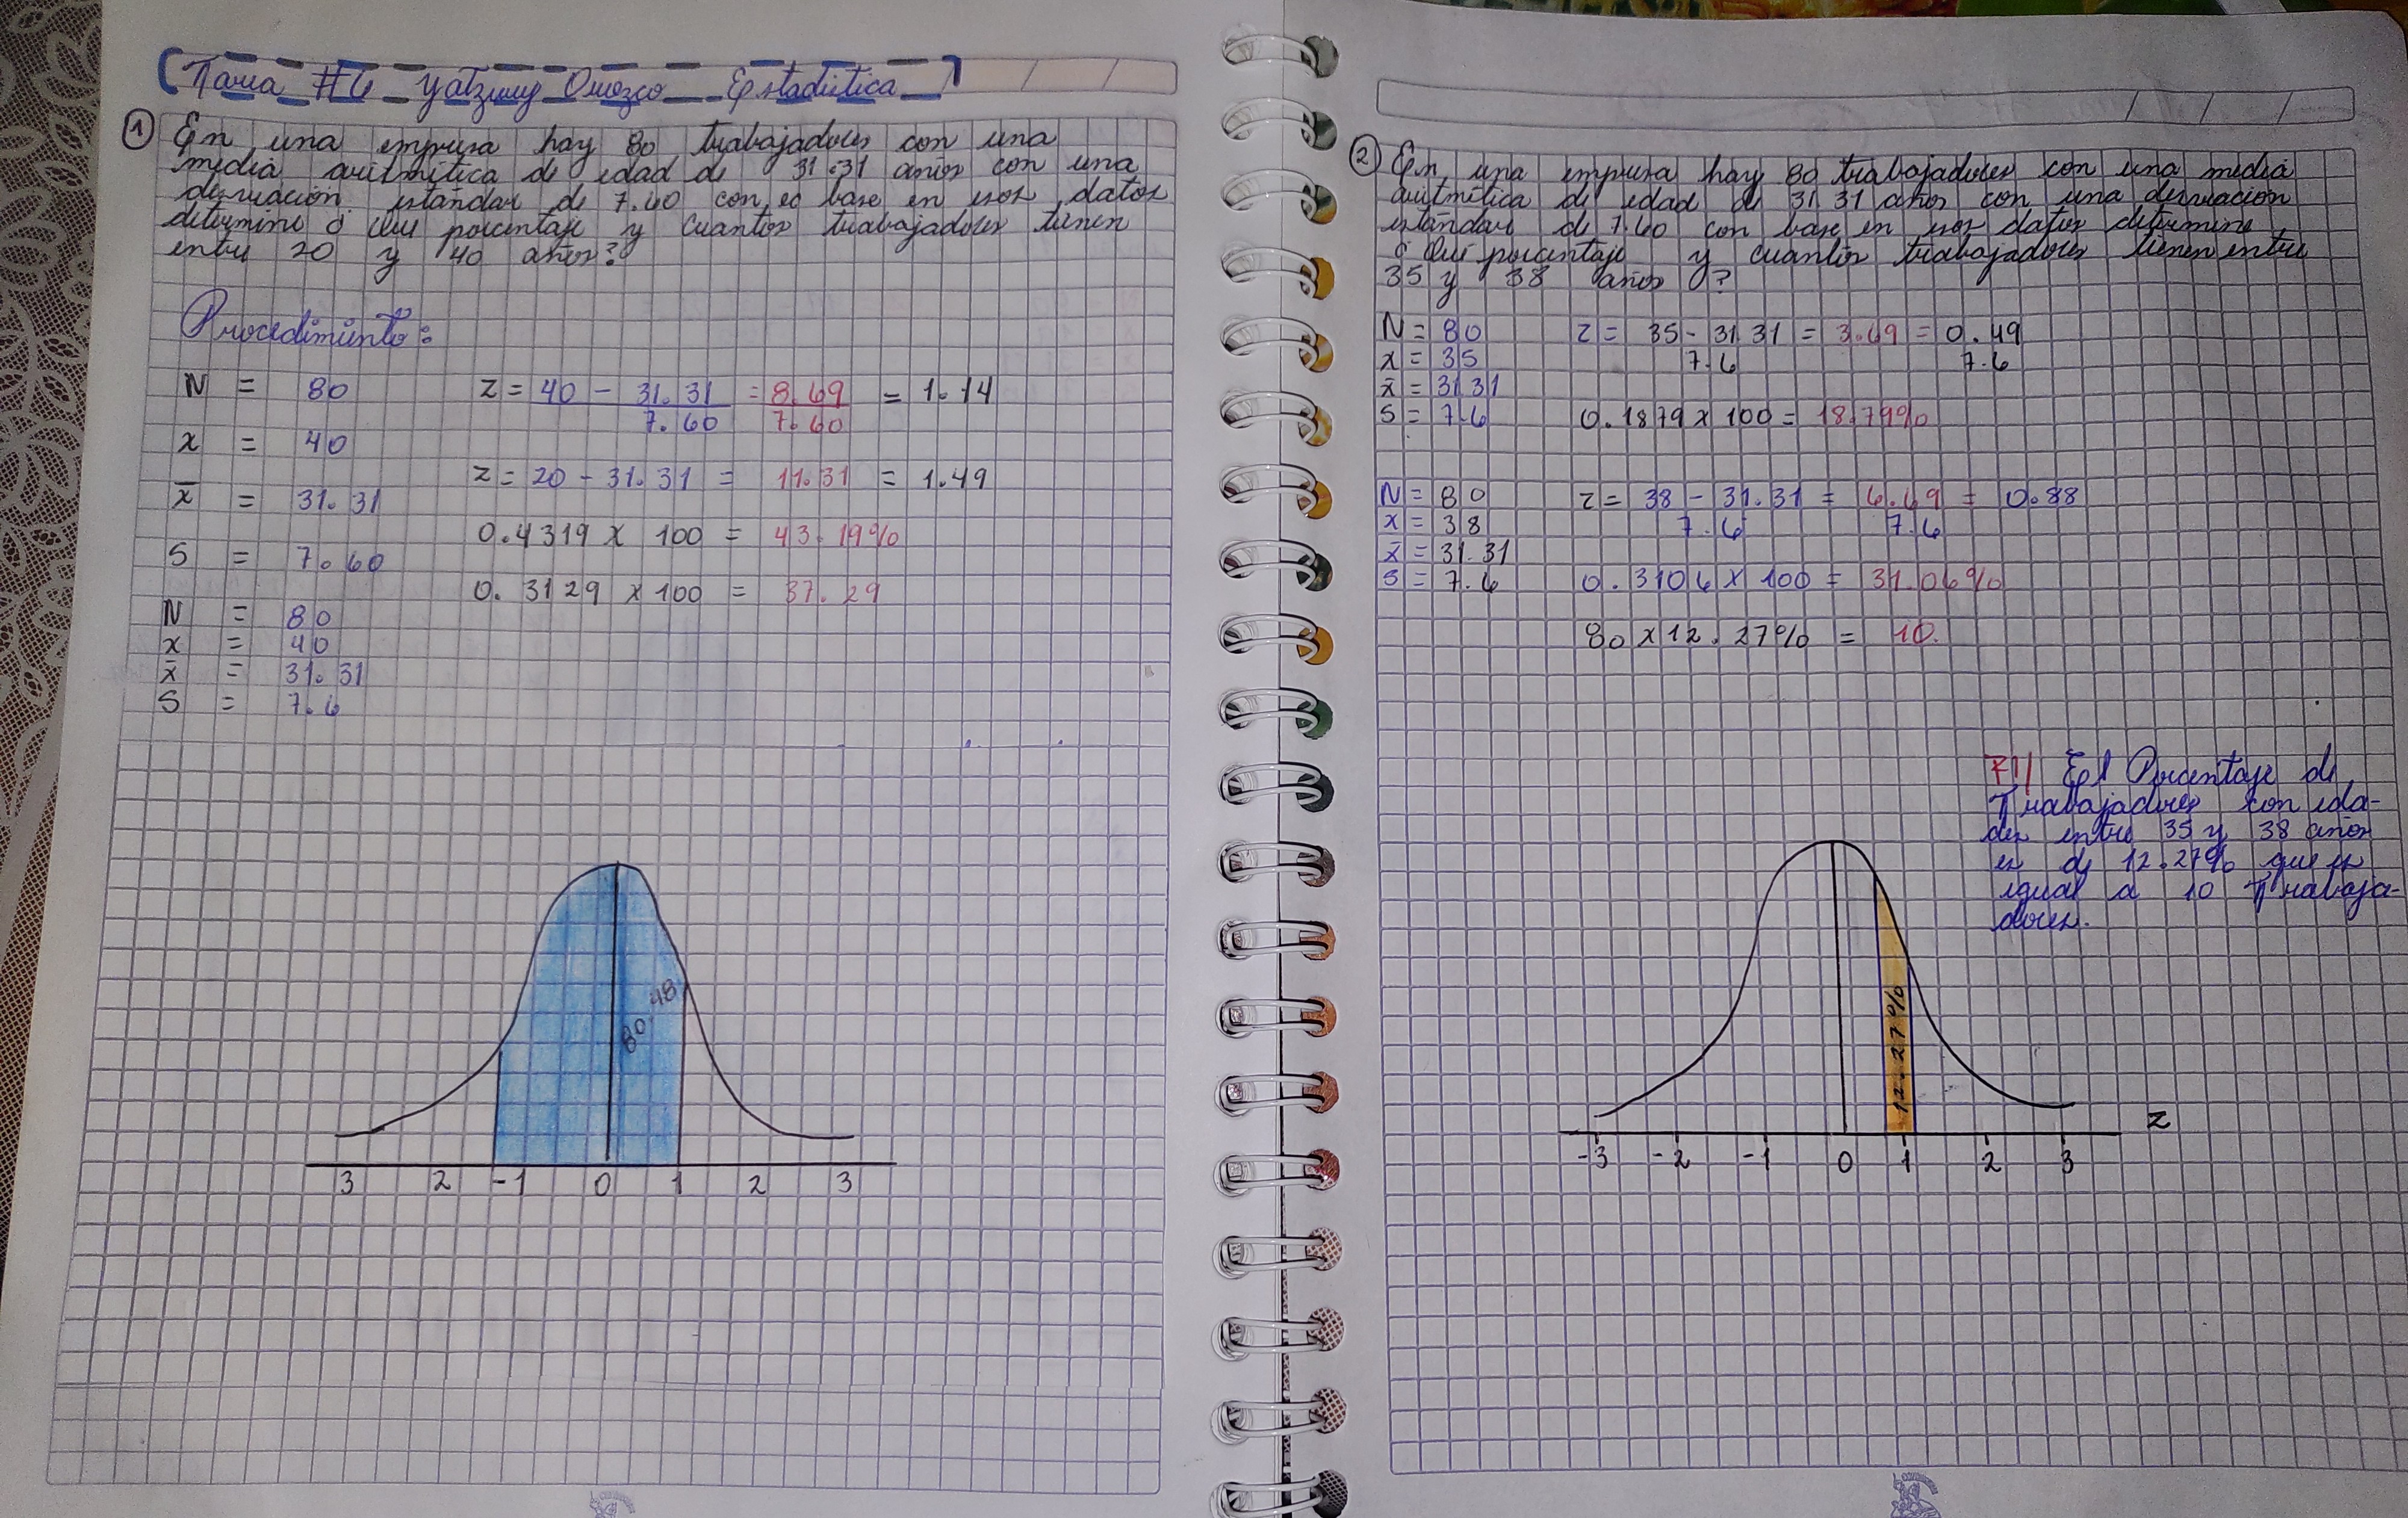 Tarea #6 Yatzuny Orozco Estadistica
① En una empresa hay 80 trabajadores con una
media aritmética de edad de 31.31 años con una
desviación estándar de 7.60 con es base en esos datos
determine ¿Que porcentaje y cuantos trabajadores tienen
entre 20 y 40 años?
Procedimiento:
N = 80
x = 40
x̄ = 31.31
S = 7.60
N = 80
x = 40
x̄ = 31.31
S = 7.6
z = 40 - 31.31 = 8.69 = 1.14
7.60 7.60
z = 20 - 31.31 = 11.31 = 1.49
0.4319 x 100 = 43.19%
0.3129 x 100 = 37.29
80.48
3 2 -1 0 1 2 3
② En una empresa hay 80 trabajadores con una media
aritmética de edad de 31.31 años con una desviación
estándar de 7.60 con base en esos datos determine
¿Qué porcentaje y cuantos trabajadores tienen entre
35 y 38 años?
N = 80
x = 35
x̄ = 31.31
S = 7.6
z = 35 - 31.31 = 3.69 = 0.49
7.6 7.6
0.1879 x 100 = 18.79%
N = 80
x = 38
x̄ = 31.31
S = 7.6
z = 38 - 31.31 = 6.69 = 0.88
7.6 7.6
0.3106 x 100 = 31.06%
80 x 12.27% = 10.
R// El Porcentaje de
Trabajadores con eda-
des entre 35 y 38 años
es de 12.27% que es
igual a 10 Trabaja-
dores.
12.27%
z
-3 -2 -1 0 1 2 3